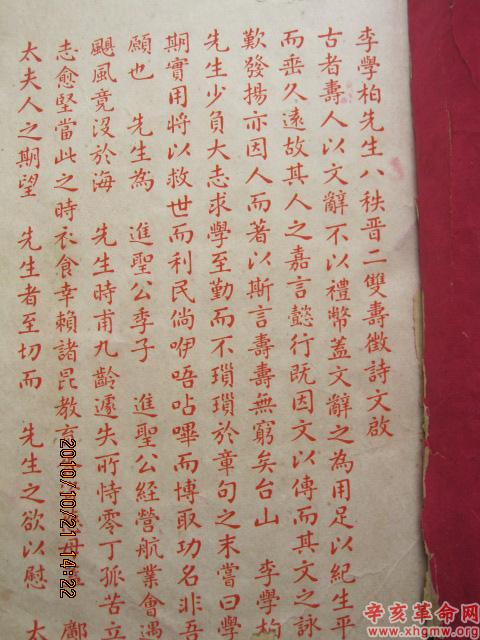 李學柏先生八秩晋二雙壽徵詩文啟
古者壽人以文辭不以禮幣葢文辭之為用足以紀生平
而垂久遠故其人之嘉言懿行既因文以傳而其文之詠
歎發揚亦因人而著以斯言壽壽無窮矣台山 李學柏
先生少負大志求學至勤而不瑣瑣於章句之末嘗曰學
期實用將以救世而利民倘咿唔呫嗶而博取功名非吾
願也 先生為 進聖公季子 進聖公經營航業會遇
颶風竟沒於海 先生時甫九齡遽失所恃零丁孤苦立
志愈堅當此之時衣食幸賴諸昆教育 母 鄺
太夫人之期望 先生者至切而 先生之欲以慰 太
2010/10/21 14:22
辛亥革命网
www.xhgmw.org